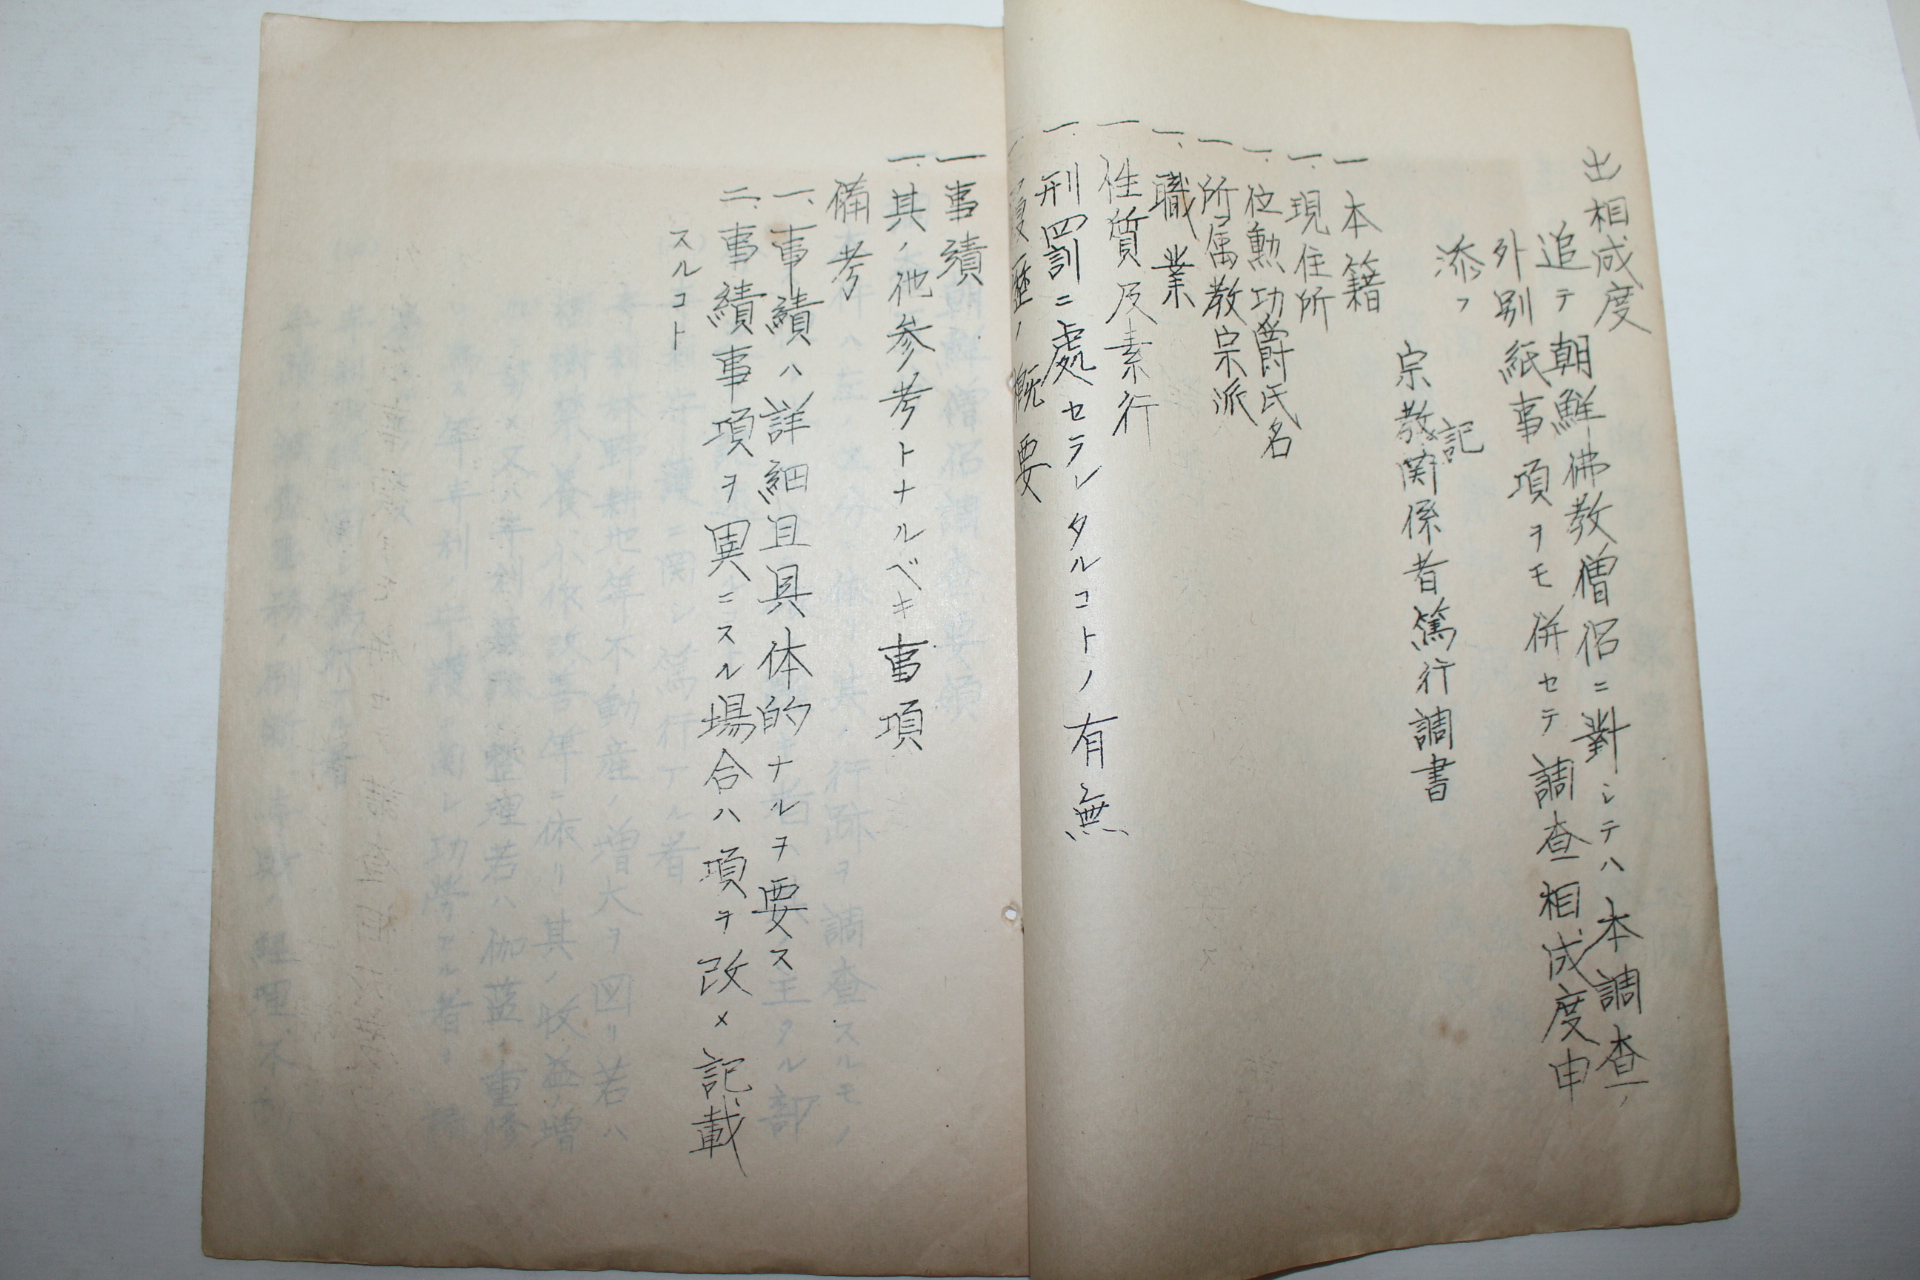 出相成度
追テ朝鮮佛教僧侶ニ對シテハ本調査ノ
外別紙事項ヲモ併セテ調査相成度申
添フ
記
宗教関係者篤行調書
一 本籍
一、現住所
一、位勲功爵氏名
一 所属教宗派
一、職業
一 性質及素行
一、刑罰ニ處セラレタルコトノ有無
一、履歴ノ概要
一 事績
一、其ノ他参考トナルベキ事項
備考
一、事績ハ詳細且具体的ナルヲ要ス
二、事績事項ヲ異ニスル場合ハ項ヲ改メ記載
スルコト